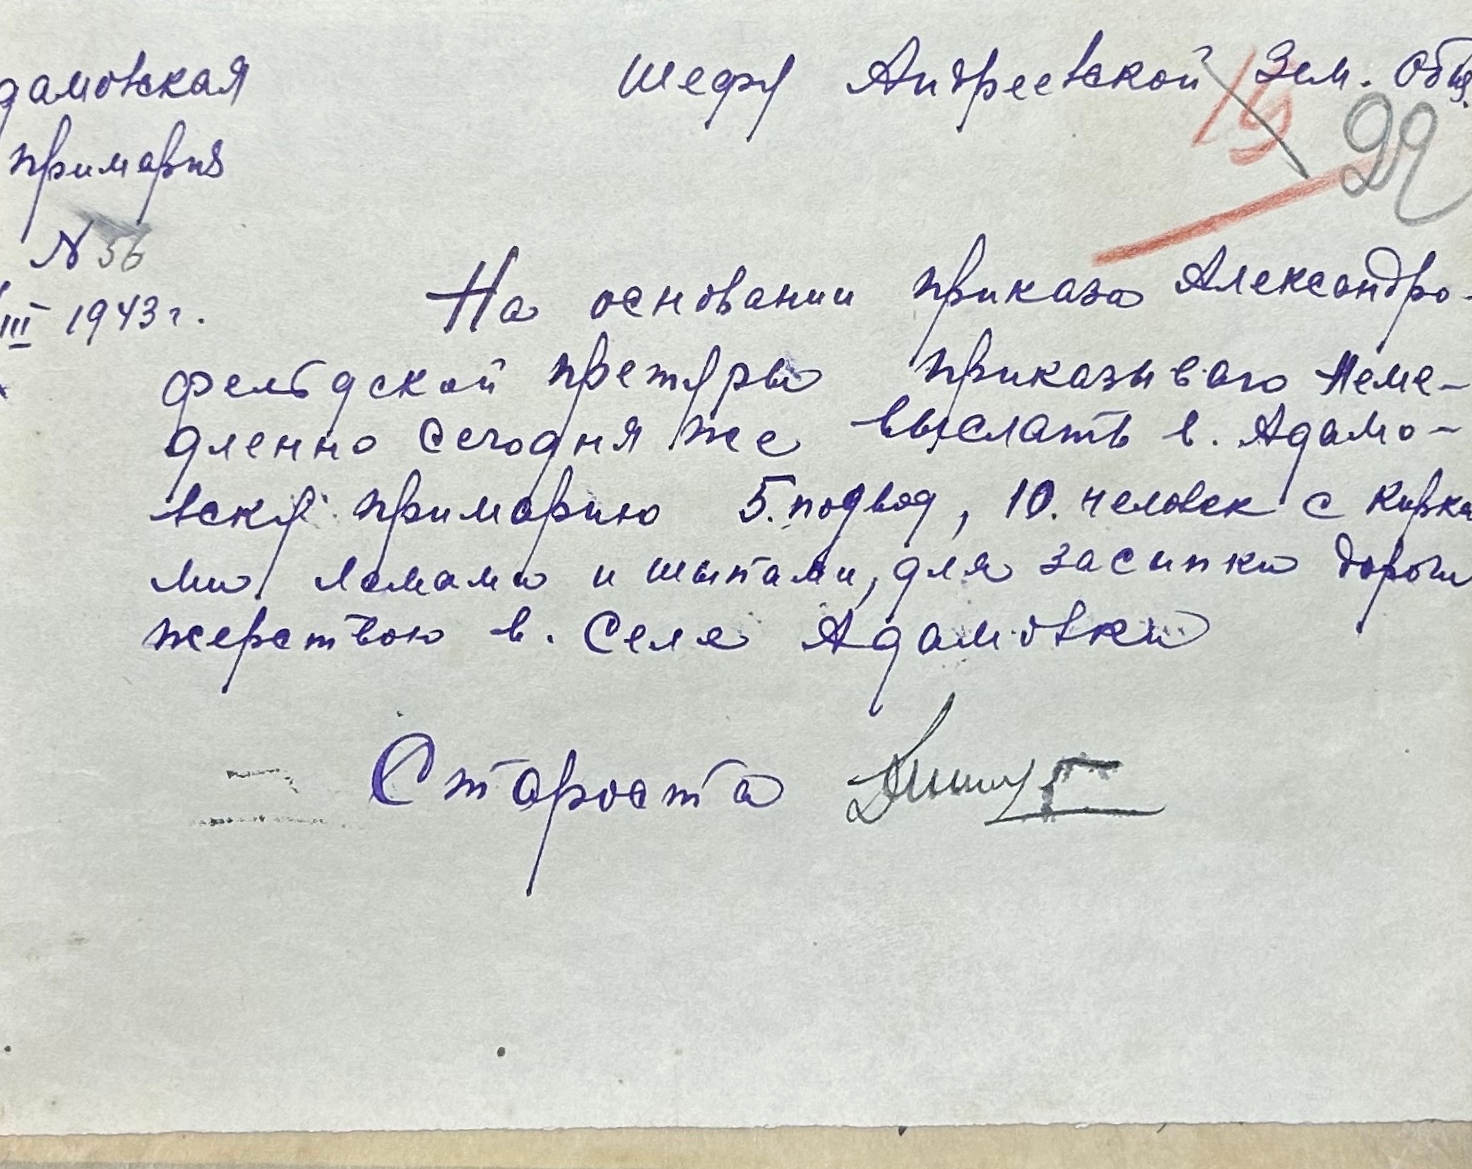 дамовская
Шефу Андреевской Зем. Общ.
примария
19
92
N 56
III 1943 г.
На основании приказа Александро-
фельдской претуры приказываю Неме-
дленно сегодня же выслать в. Адамо-
вску примарию 5. подвод, 10. человек с кирка
ми ломами и шыпами, для засипки дороги
жерствою в. Селе Адамовки
Староста